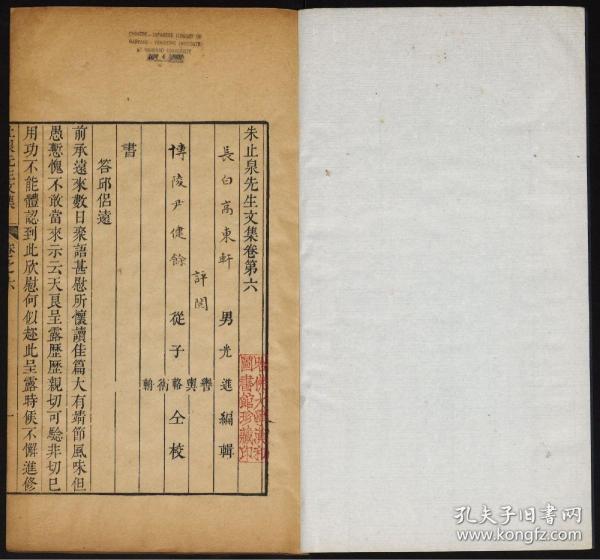 CHINESE-JAPANESE LIBRARY OF
HARVARD-YENCHING INSTITUTE
AT HARVARD UNIVERSITY
朱止泉先生文集卷第六
長白高東軒
博陵尹健餘
評閱
男光進編輯
從子
輅
衡
翰
仝校
書
答邱侶遠
前承遠來數日聚語甚慰所懷讀佳篇大有靖節風味但
愚慙愧不敢當來示云天良呈露歷歷親切可驗非切己
用功不能體認到此欣慰何似趁此呈露時候不懈進修
止泉先生文集
卷之六
一
哈佛大學漢和圖書館珍藏印
孔夫子旧书网